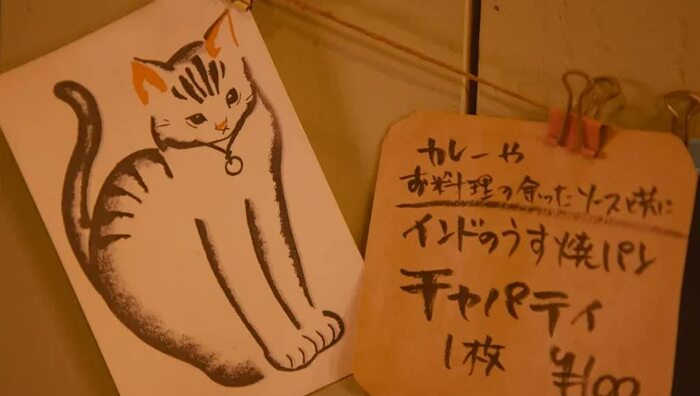 カレーや
お料理の余ったソースと共に
インドのうす焼パン
チャパティ
1枚 ¥100